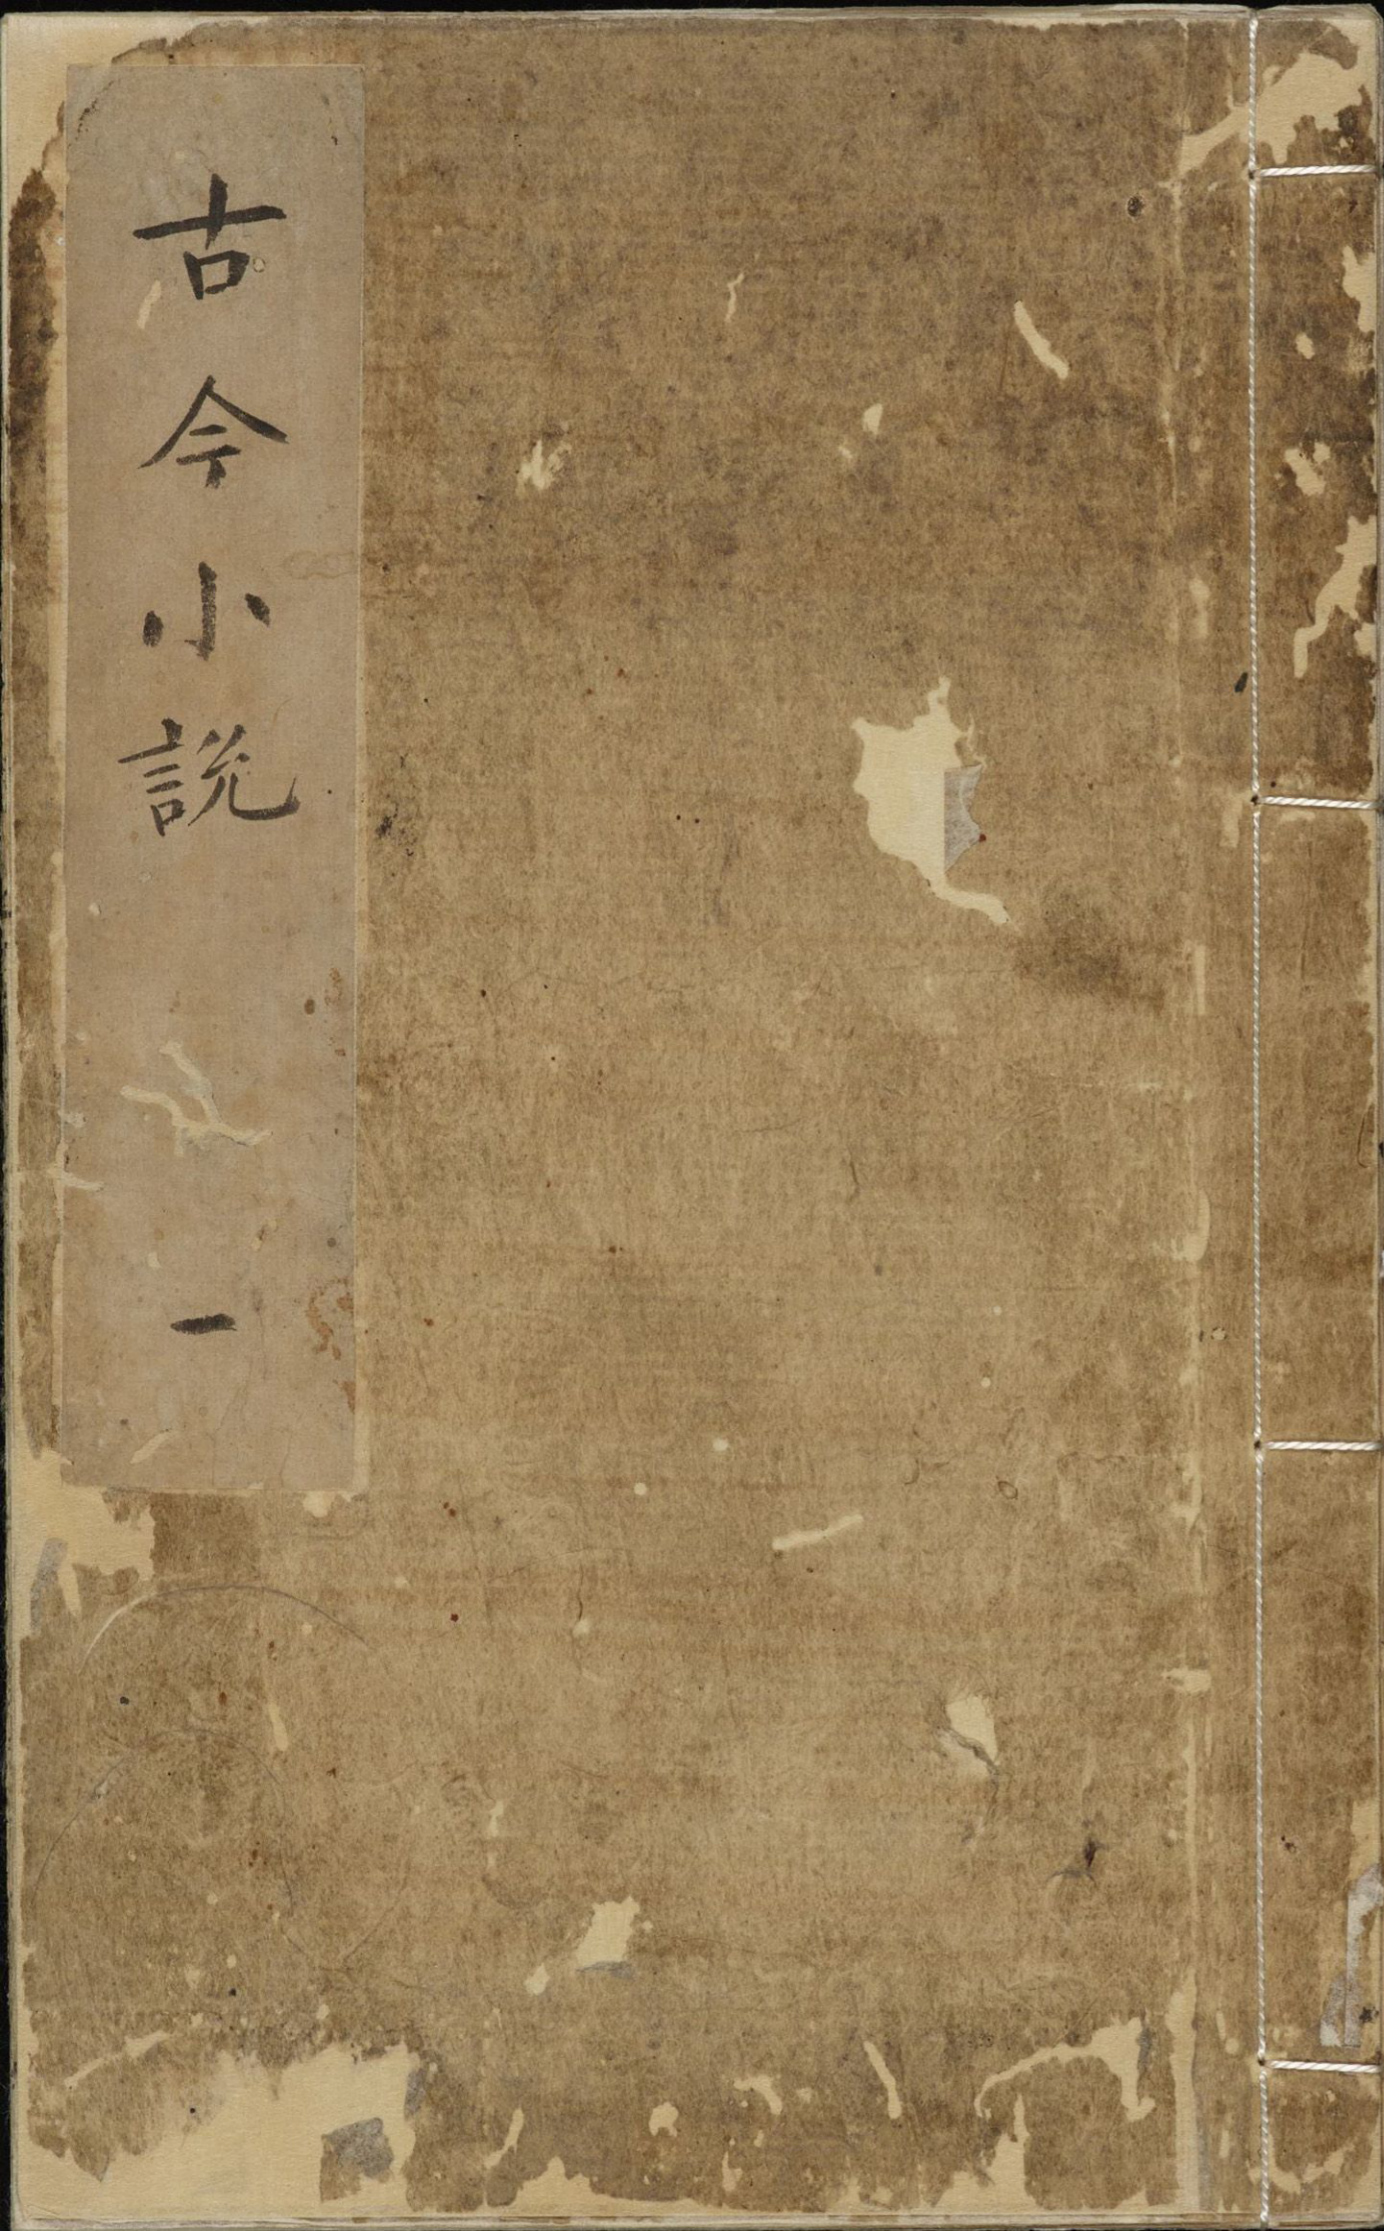 古今小説
一